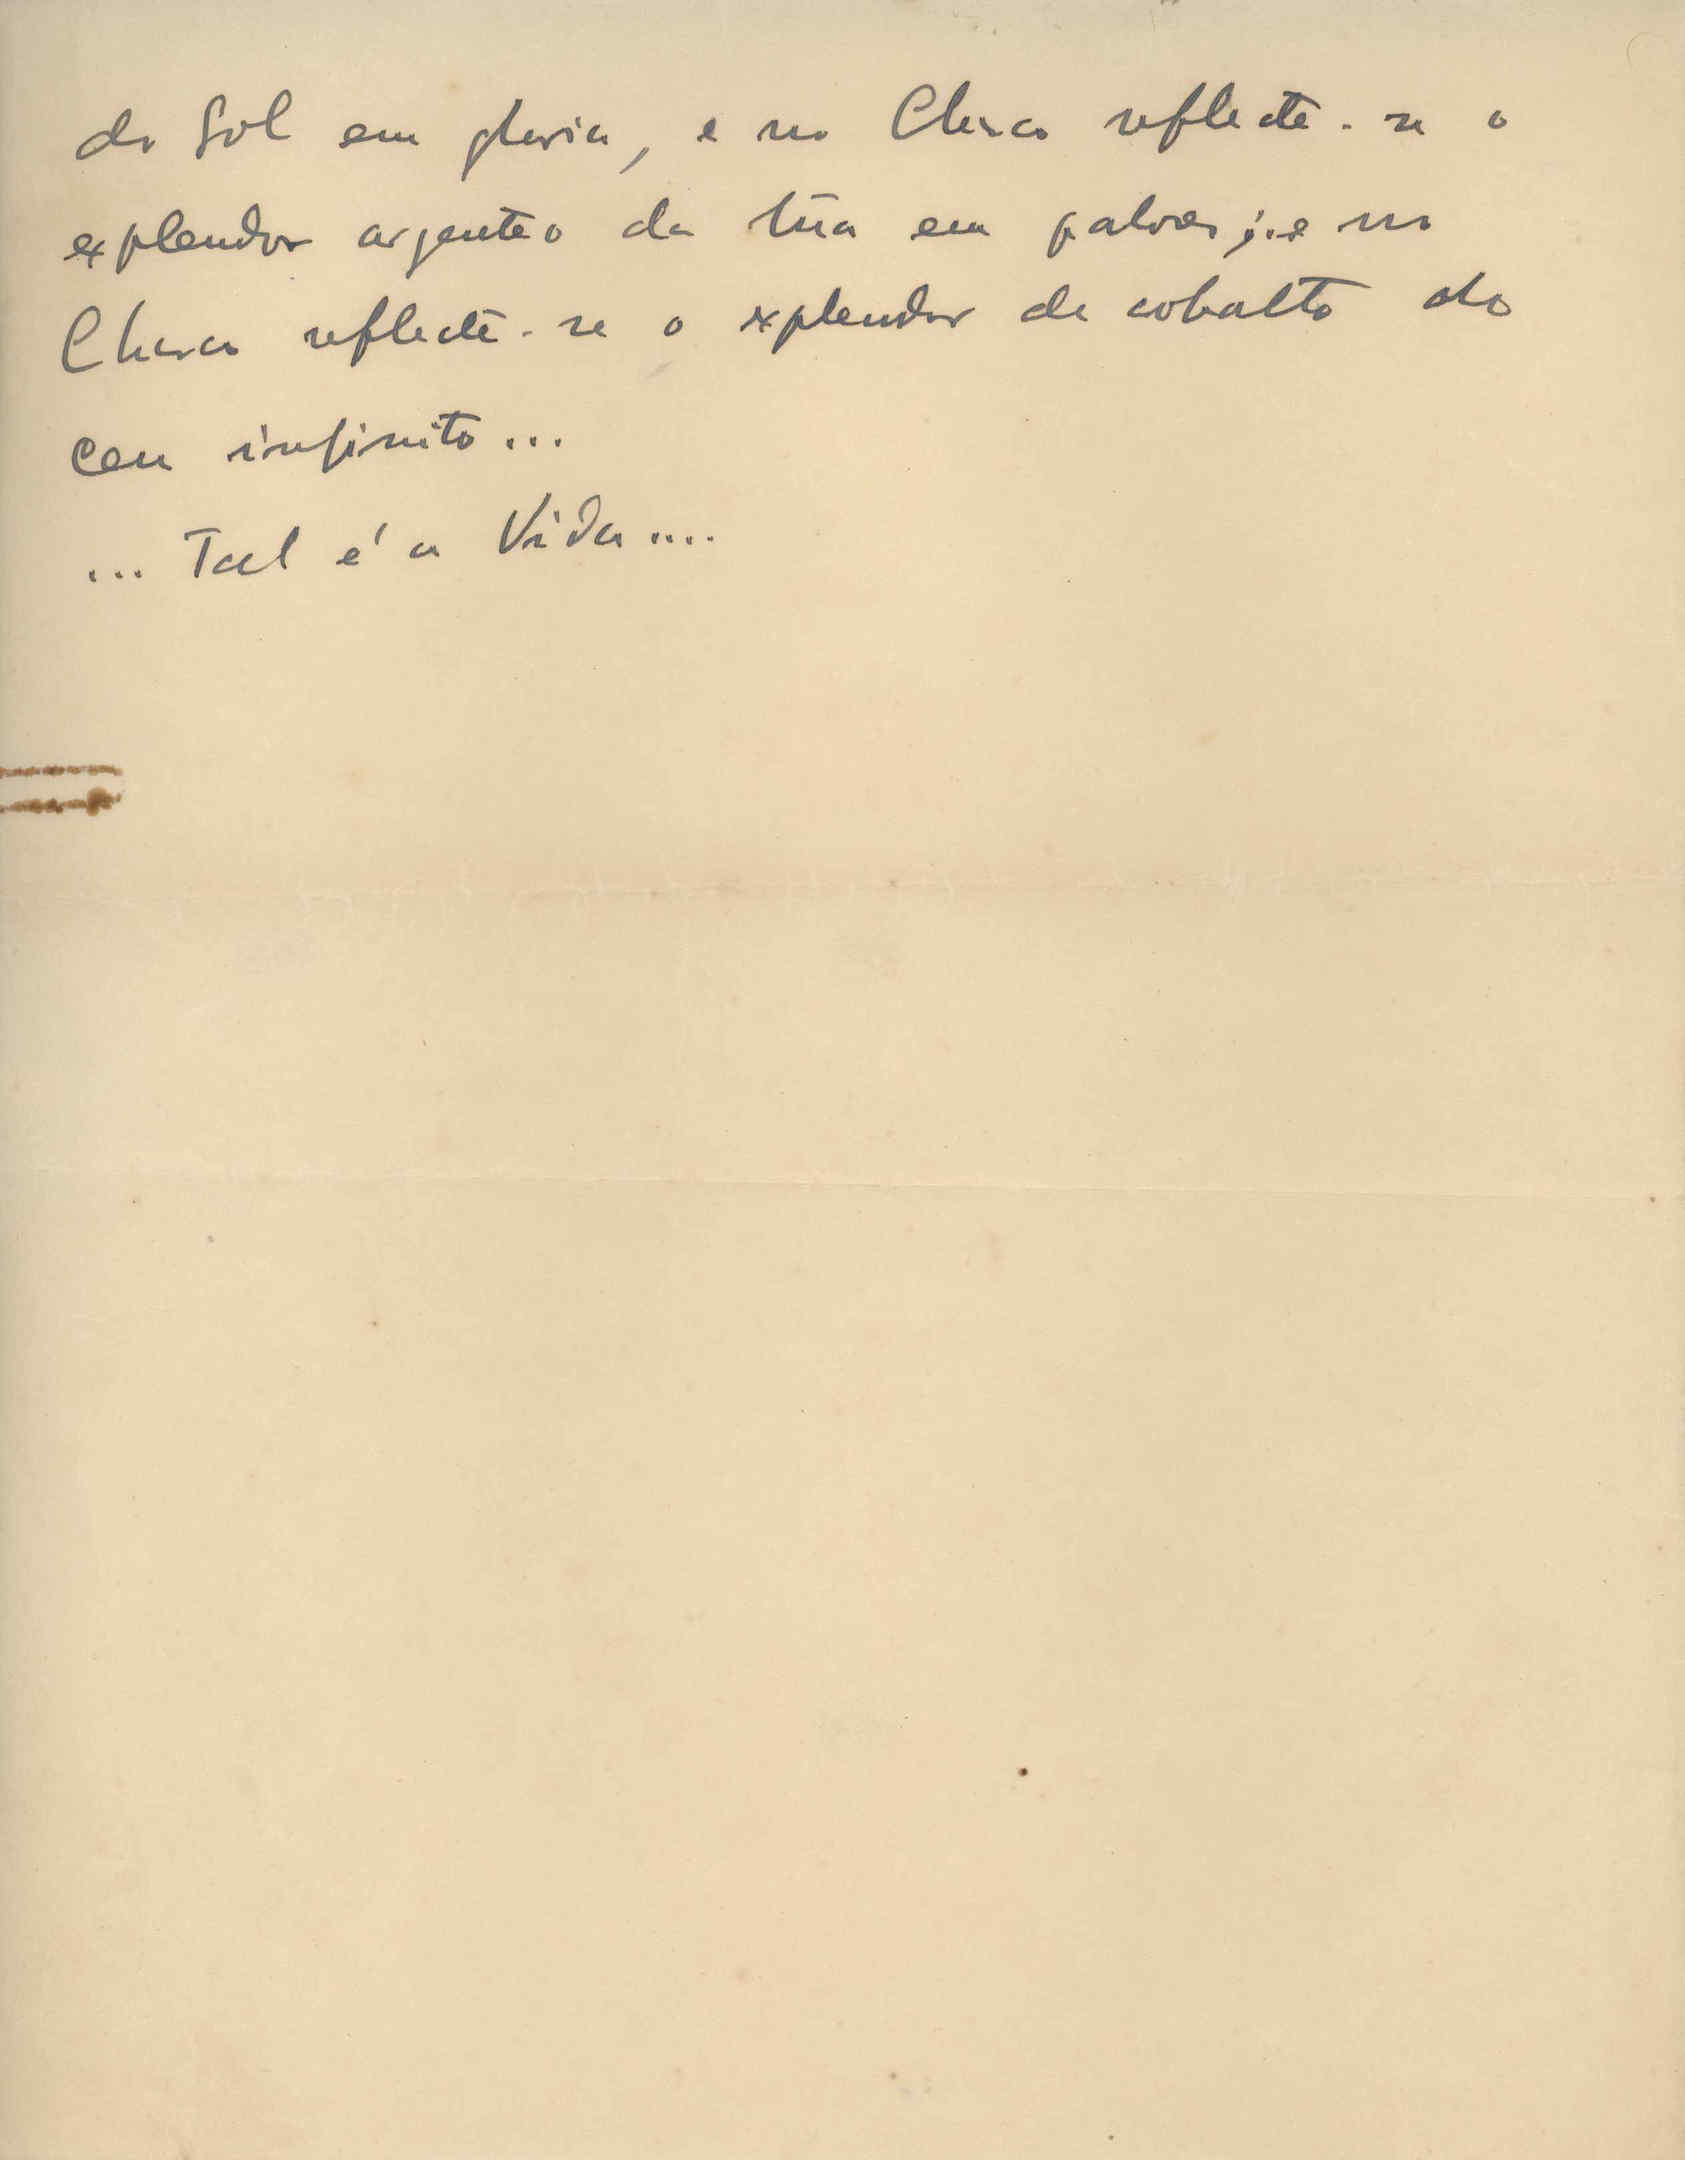 do Sol em gloria, e no Charco reflecte-se o
explendor argenteo da lua em ; e no
Charco reflecte-se o explendor de cobalto do
ceu infinito...
... Tal é a Vida....